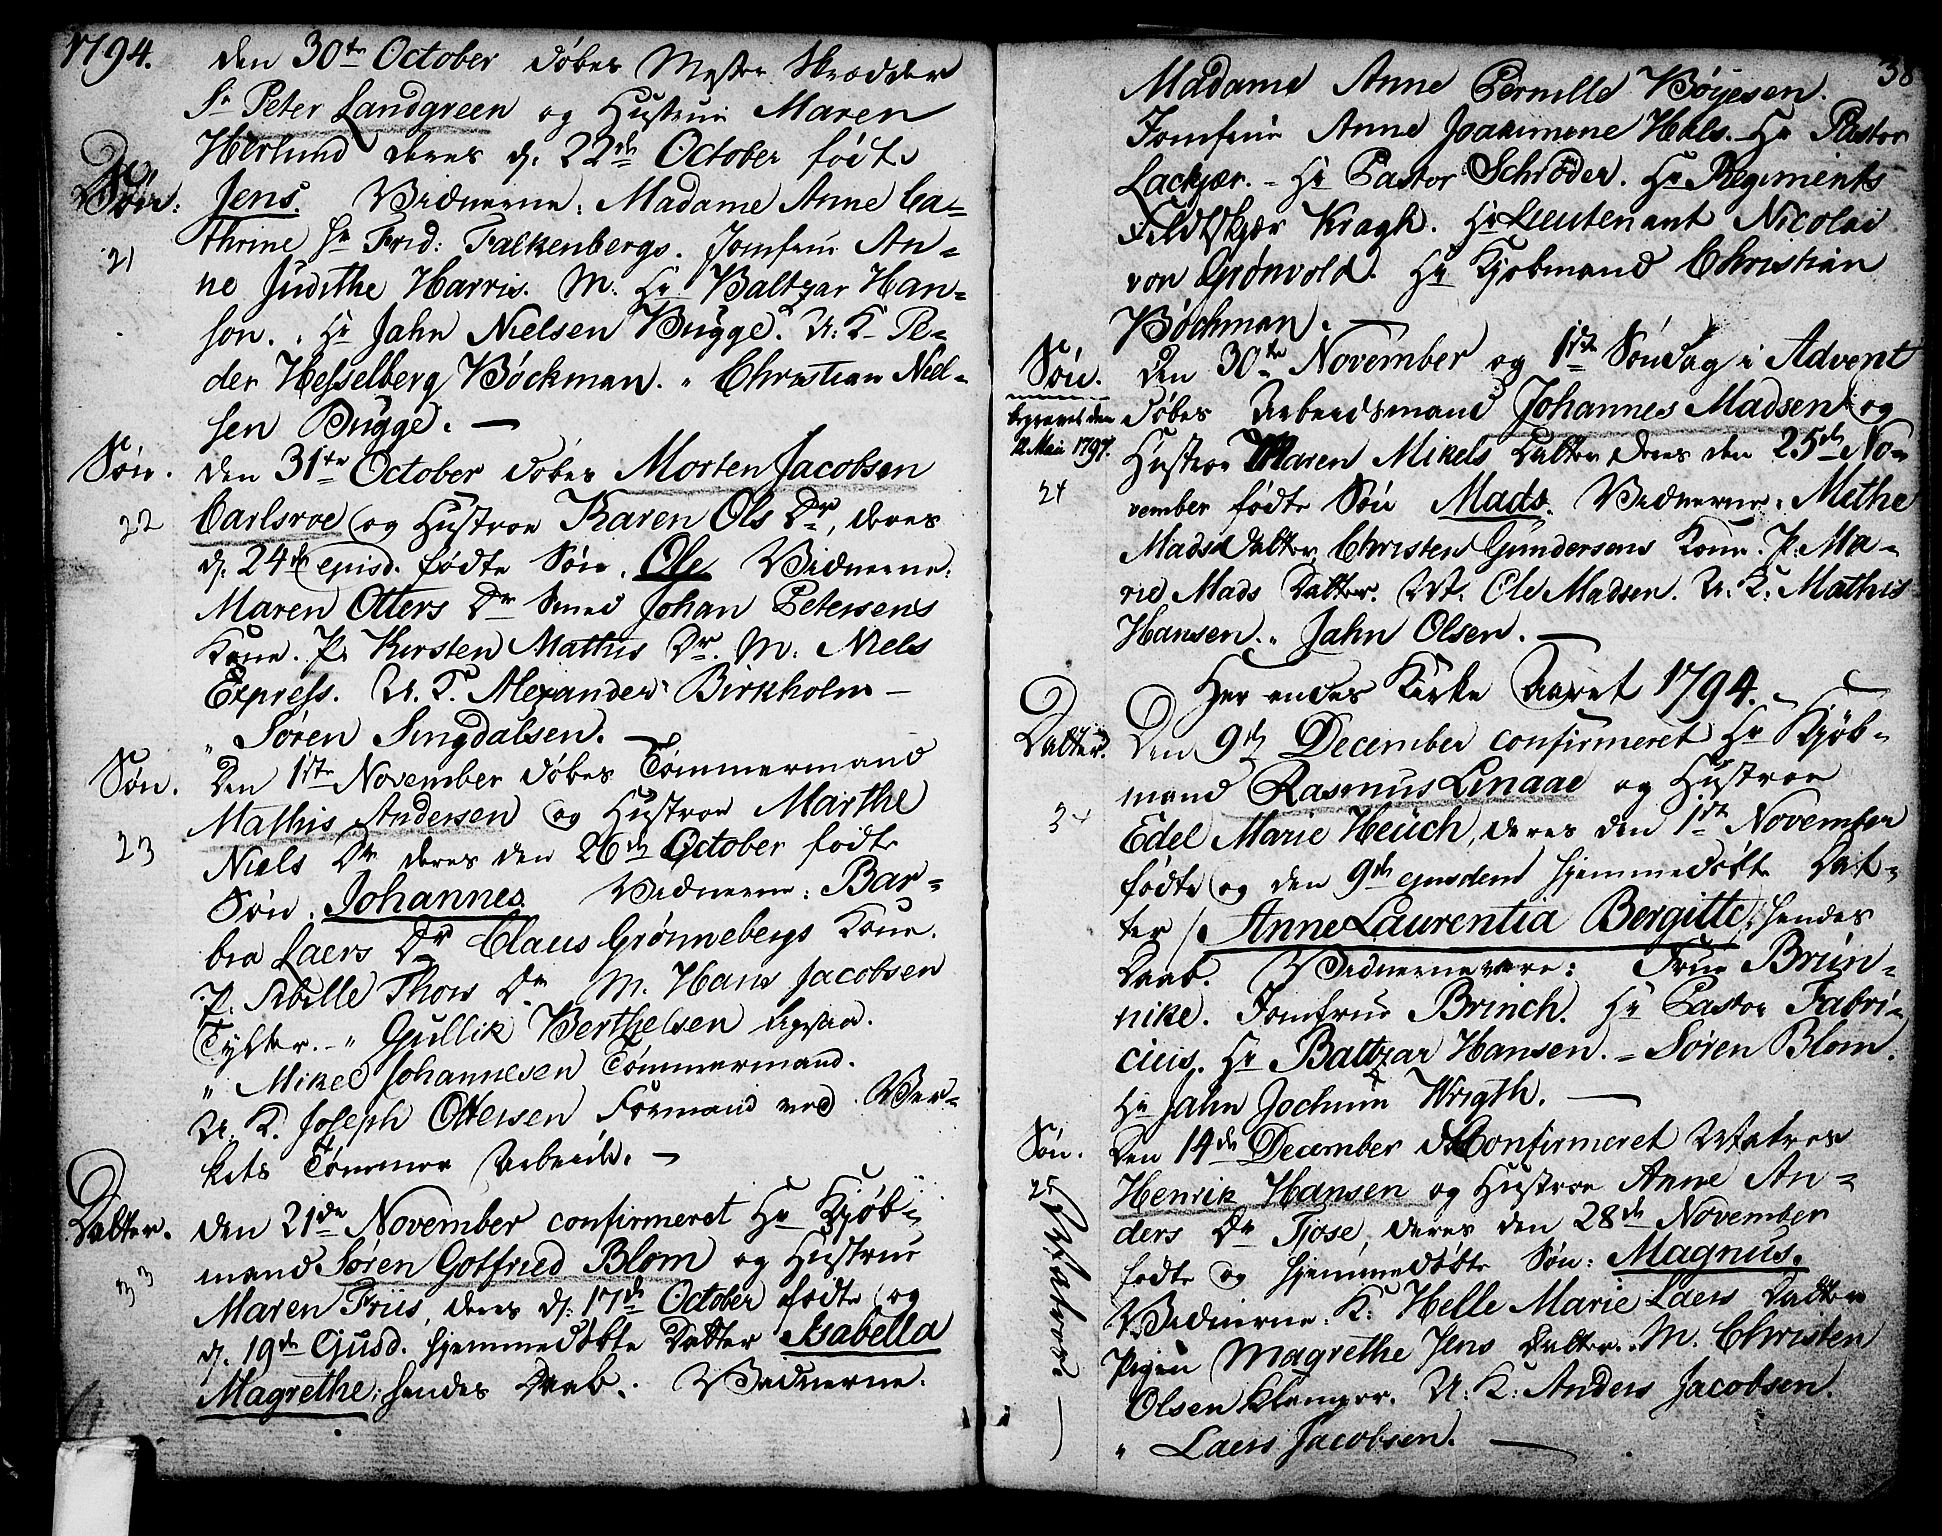 1794.
den 30te October döbes Mester Skrædder
Sr Peter Landgreen og Hustrue Maren
Herlund deres d. 22de October födte
Søn: Jens. Vidnerne: Madame Anne Ca-
21
thrine Hr Frid: Falkenbergs. Jomfrue An-
ne Judithe Harris. M. Hr Baltzar Han-
sen. Hr Jahn Nielsen Bugge. U. K. Pe-
der Hesselberg Böckman. " Christian Niel-
sen Bugge. —
Søn. den 31te October döbes Morten Jacobsen
22 Carlsroe og Hustroe Karen Ols Dr, deres
d. 24de ejusd. födte Søn. Ole Vidnerne:
Maren Otters Dr Smed Johan Petersens
Kone. P. Kirsten Mathis Dr. M. Niels
Express. U. K. Alexander Birkholm —
" Søren Singdalsen. —
Søn. Den 1ste November döbes Tömmermand
Mathis Andersen og Hustroe Marthe
23 Niels Dr deres den 26de October födte
Søn. Johannes. Vidnerne: Bar-
bra Laers Dr Claus Grønnebergs Kone.
P. Sibille Thors Dr M. Hans Jacobsen
Tyfter. " Gullik Berthelsen
" Mikel Johannesen Tømmermand.
U. K. Joseph Ottersen Formand ved Ver-
kets Tømmer Arbeide. —
Datter. den 21de November confirmeret Hr Kjöb-
mand Søren Gotfried Blom og Hustrue
33 Maren Friis, deres d. 17de October födte og
d. 19de Ejusd. hjemmedöbte Datter Isabella
Magrethe; hendes Daab. Vidnerne.
38
Madame Anne Pernille Böyesen.
Jomfrue Anne Joakimene Hals. Hr Pastor
Lackjær. - Hr Pastor Schrøder. Hr Regiments
Feldtskjær Kragh. Hr Lieutenant Nicolai
von Grönvold. Hr Kjøbmand Christian
Böchman. —
Søn. Den 30te November og 1ste Søndag i Advent
begravet den döbes Arbeidsmand Johannes Madsen og
12 Maii 1797. Hustroe Maren Mikels Datter deres den 25de No-
24 vember födte Søn Mads. Vidnerne: Methe
Mads Datter, Christen Gundersens Kone. P. Ma-
rie Mads Datter. M. Ole Madsen. U. K: Mathis
Hansen. " Jahn Olsen. —
Her endes Kirke Aaret 1794.
Datter. Den 9de December confirmeret Hr Kjöb-
mand Rasmus Linaae og Hustroe
34 Edel Marie Heuch, deres den 1ste November
födte og den 9de ejusdem hjemmedöbte Dat-
ter /: Anne Laurentia Bergitte; hendes
Daab. Vidnerne vare: Frue Brün-
nike. Jomfrue Brinch. Hr Pastor Fabri-
cius. Hr Baltzar Hansen. - Søren Blom.
Hr Jahn Jochum Wrigth. —
Søn. Den 14de December Confirmeret Matros
25 Henrik Hansen og Hustroe Anne An-
ders Dr Tjose, deres den 28de November
födte og hjemmedöbte Søn: Magnus.
Vidnerne. K: Helle Marie Laers Datter
Pigen Magrethe Jens Datter. M. Christen
Olsen Klemper. U. K: Anders Jacobsen.
" Laers Jacobsen. —